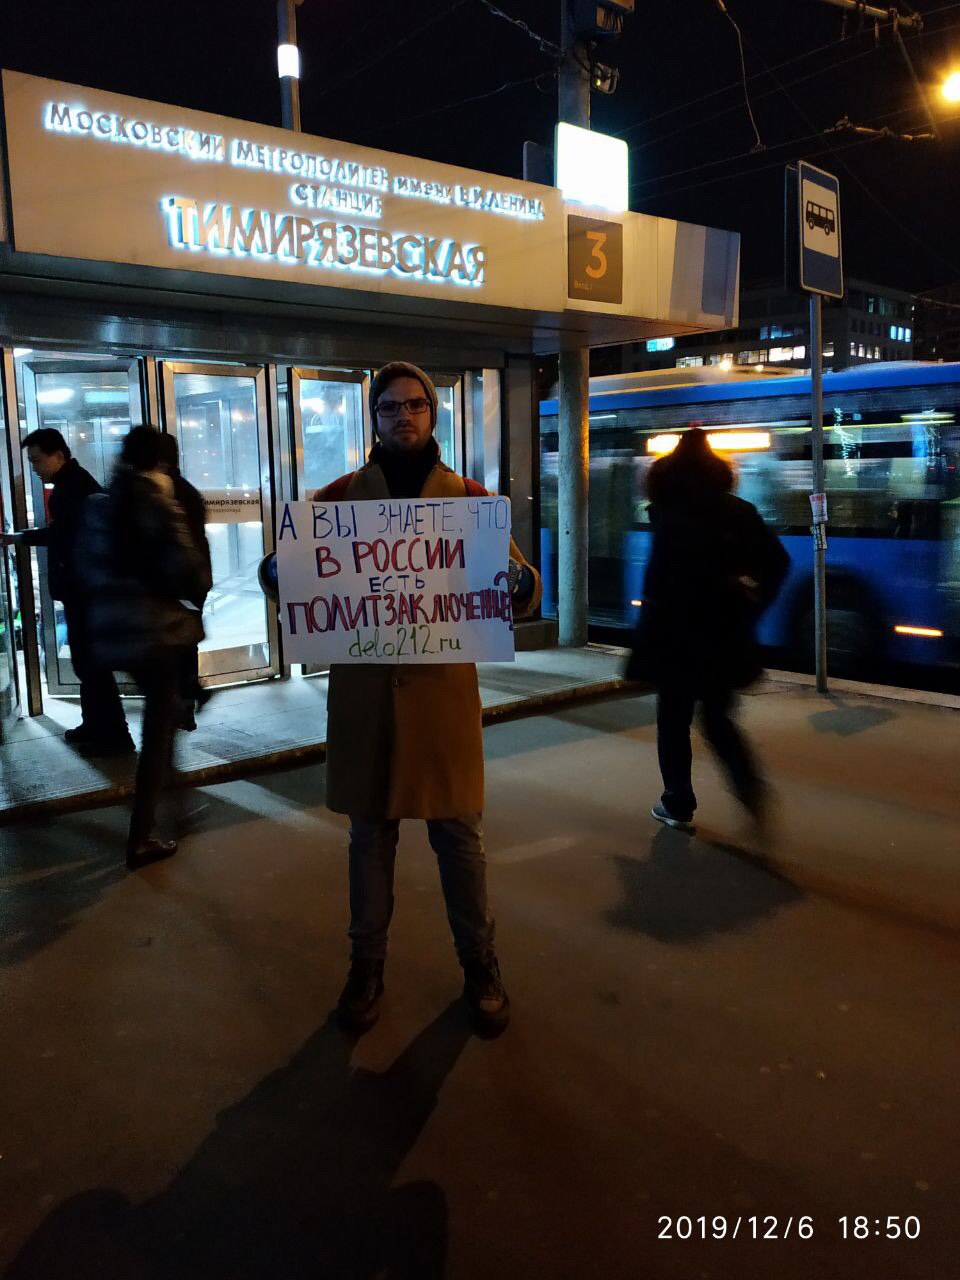 МОСКОВСКИЙ МЕТРОПОЛИТЕН имени В.И.ЛЕНИНА
СТАНЦИЯ
ТИМИРЯЗЕВСКАЯ
3
Вход /
Тимирязевская
А ВЫ ЗНАЕТЕ, ЧТО
В РОССИИ
ЕСТЬ
ПОЛИТЗАКЛЮЧЕННЫЕ?
delo212.ru
2019/12/6 18:50